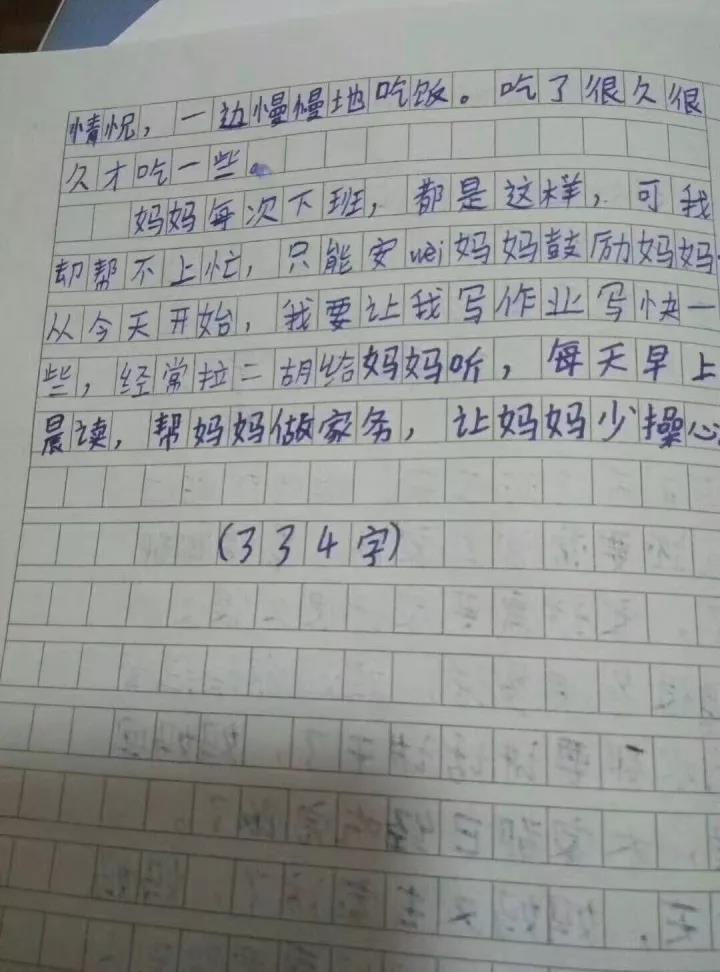 情况，一边慢慢地吃饭。吃了很久很
久才吃一些。
妈妈每次下班，都是这样，可我
却帮不上忙，只能安wei妈妈鼓励妈妈
从今天开始，我要让我写作业写快一
些，经常拉二胡给妈妈听，每天早上
晨读，帮妈妈做家务，让妈妈少操心
(334字)